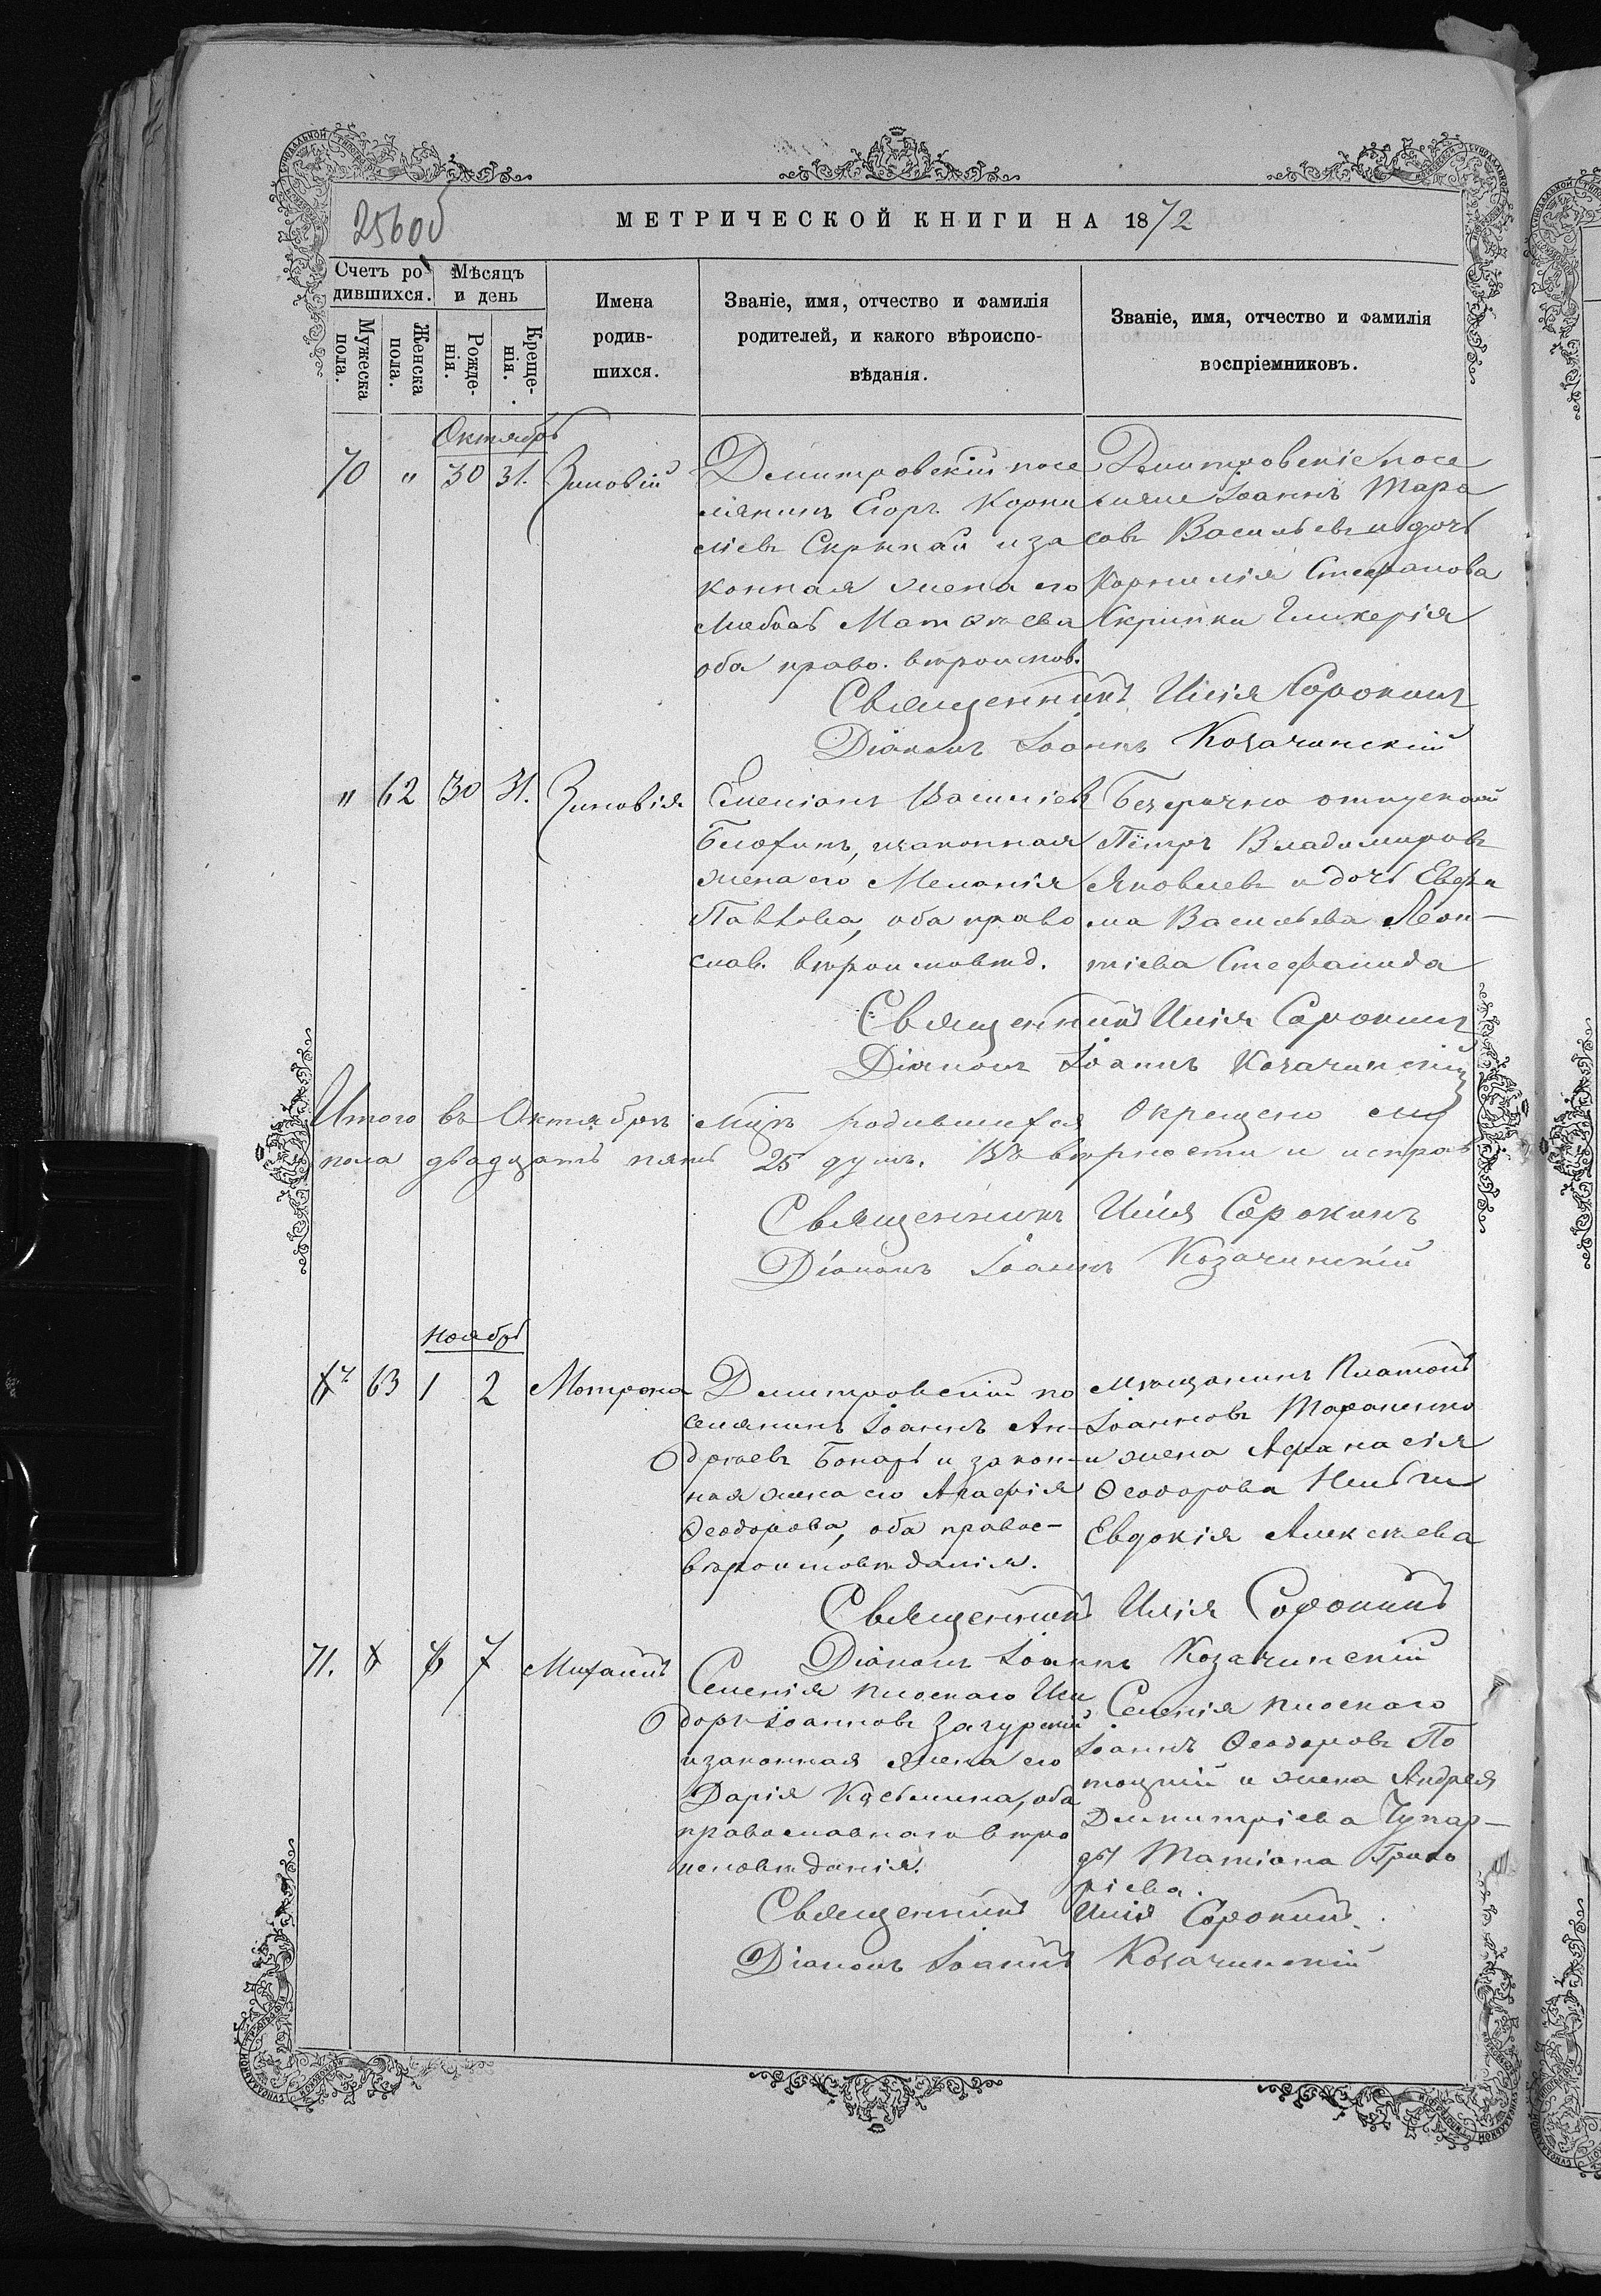 256об
МЕТРИЧЕСКОЙ КНИГИ НА 1872
Счетъ ро-
дившихся.
Мѣсяцъ
и день
Мужеска
пола.
Женска
пола.
Рожде-
нія.
Креще-
нія.
Имена
родив-
шихся.
Званіе, имя, отчество и фамилія
родителей, и какого вѣроиспо-
вѣданія.
Званіе, имя, отчество и фамилія
воспріемниковъ.
Октябрь
70 " 30 31. Зиновій
Димитровскій посе
лянинъ Егоръ Корни
ліевъ Скрипка и за
конная жена его
Матѳѣева
оба право. вѣроиспов.
Димитровскіе посе
ляне Іоаннъ Тара
совъ Васильевъ и дочь
Корнилія Стефанова
Скрипки Гликерія
Священникъ Илія Сорокинъ
Діаконъ Іоаннъ Козачинскій
" 62 30 31. Зиновія
Емеліанъ Василіевъ
и законная
жена его Меланія
Павлова, оба право
слав. вѣроисповѣд.
Безсрочно отпускной
Петръ Владимировъ
Яковлевъ и дочь Ефи
ма Васильева Леон-
тіева Стефанида
Священникъ Илія Сорокинъ
Діаконъ Іоаннъ Козачинскій
Итого въ Октябрѣ родившихся Окрещено
пола двадцать пять 25 душъ. Въ вѣрности и исправ
Священникъ Илія Сорокинъ
Діаконъ Іоаннъ Козачинскій
Ноябрь
63 1 2 Мотрона
Димитровскій по
селянинъ Іоаннъ Ан-
дреевъ Бонарь и закон-
ная жена его Агафія
Ѳеодорова, обa правос-
вѣроисповѣданія.
Мѣщанинъ Платонъ
Іоанновъ Тараненко
и жена Афанасія
Ѳеодорова
Евдокія Алексѣева
Священникъ Илія Сорокинъ
Діаконъ Іоаннъ Козачинскій
71. 6 7 Михаилъ
Селенія Плоскаго Иси
доръ Іоанновъ Загурскій
и законная жена его
Дарія Козьмина, оба
православнаго вѣро
исповѣданія.
Селенія Плоскаго
Іоаннъ Ѳеодоровъ По
тоцкій и жена Андрея
Димитріева
Татіана Григо
ріева.
Священникъ Илія Сорокинъ.
Діаконъ Іоаннъ Козачинскій